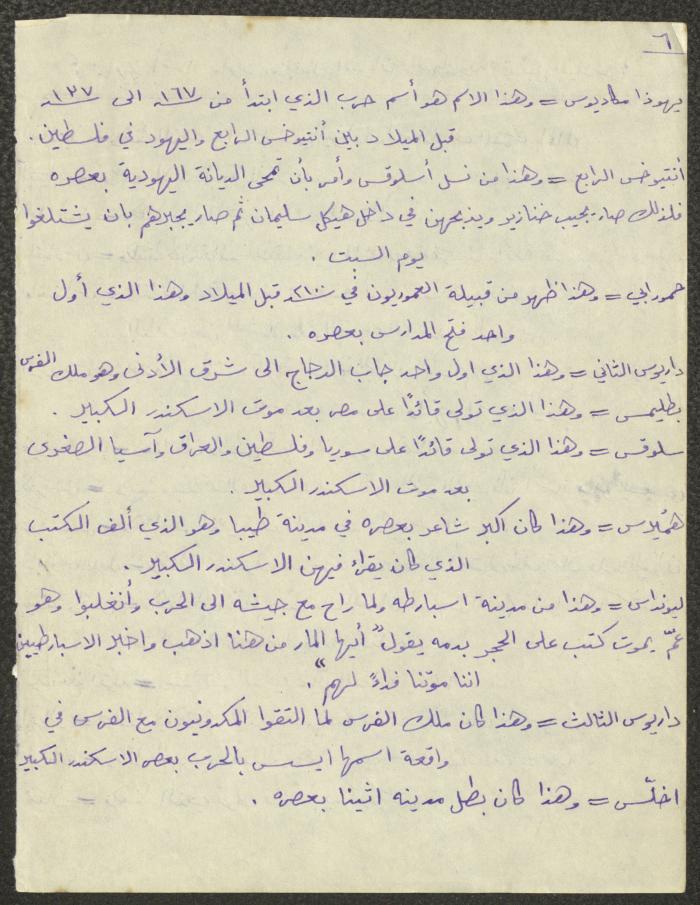 ٦
يهوذا مكابيوس = وهذا الاسم هو أسم حرب الذي ابتدأ من ١٦٧ الى ١٣٧
قبل الميلاد بين أنتيوخس الرابع واليهود في فلسطين .
أنتيوخس الرابع = وهذا من نسل أسلوقس وأمر بأن تمحى الديانة اليهودية بعصره
فلذلك صار يجيب خنازير ويذبحهن في داخل هيكل سليمان ثم صار يجبرهم بان يشتلغوا
يوم السبت .
حمورابي = وهذا ظهر من قبيلة العموريون في ٢١٠٠ قبل الميلاد وهذا الذي أول
واحد فتح المدارس بعصره .
داريوس الثاني = وهذا الذي اول واحد جاب الدجاج الى شرق الأدنى وهو ملك الفرس
بطليمس = وهذا الذي تولى قائدًا على مصر بعد موت الاسكندر الكبير .
سلوقس = وهذا الذي تولى قائدًا على سوريا وفلسطين والعراق وآسيا الصغرى
بعد موت الاسكندر الكبير .
هميرس = وهذا كان اكبر شاعر بعصره في مدينة طيبا وهو الذي ألف الكتب
الذي كان يقراء فيهن الاسكندر الكبير .
ليونداس = وهذا من مدينة اسبارطه ولما راح مع جيشه الى الحرب وأنغلبوا وهو
عمّ يموت كتب على الحجر بدمه يقول " أيها المار من هنا اذهب واخبر الاسبارطيين
اننا موتنا فداءً لهم " .
داريوس الثالث = وهذا كان ملك الفرس لما التقوا المكدونيون مع الفرس في
واقعة اسمها ايسس بالحرب بعصر الاسكندر الكبير
اخلّس = وهذا كان بطل مدينه اثينا بعصره .